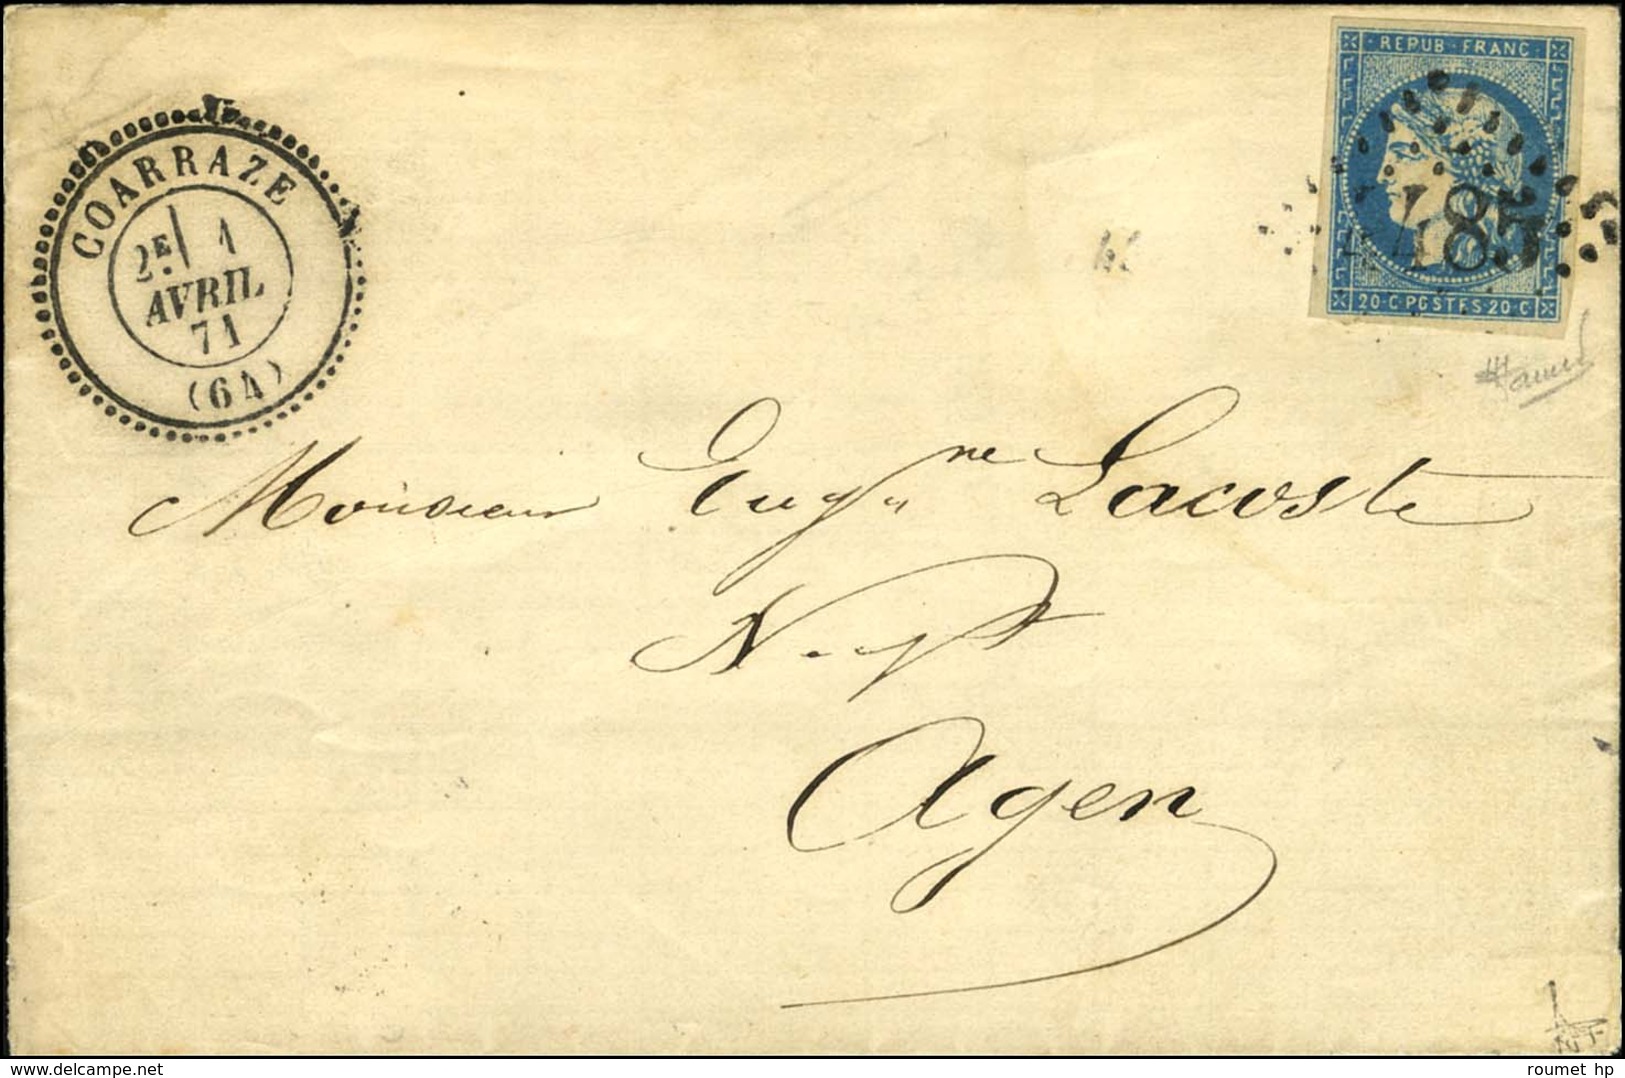 REPUB·FRANC
4485
20·C·POSTES·20·C
COARRAZE
2E 1
AVRIL
71
(64)
Monsieur Eugne Lacoste
Nt
Agen
delcampe.net
roumet hp